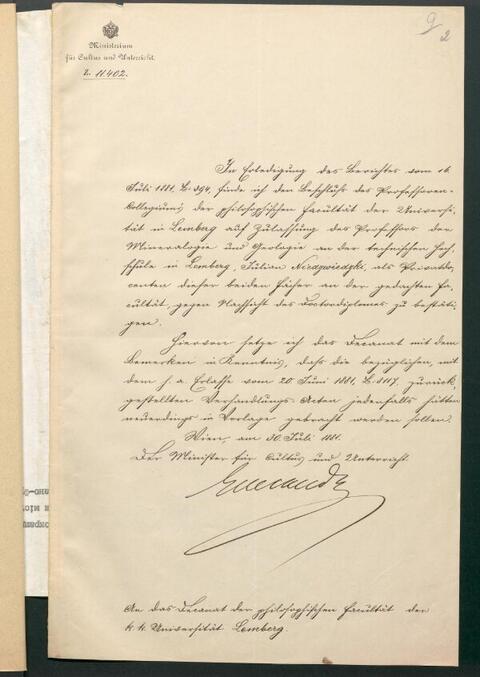 9
2
Ministerium
für Cultus und Unterricht.
Z. 11.402.
In Erledigung des Berichtes vom 16.
Juli 1881, Z: 394, finde ich den Beschluß des Professoren-
Collegiums der philosophischen Facultät der Universi-
tät in Lemberg auf Zulassung des Professors der
Mineralogie und Geologie an der technischen Hoch-
schule in Lemberg, Julian Niedzwiedzki, als Privatdo-
centen dieser beiden Fächer an der gedachten Fa-
cultät, gegen Nachsicht des Doctordiplomes zu bestäti-
gen.
Hievon setze ich das Decanat mit dem
Bemerken in Kenntnis, daß die bezüglichen, mit
dem h. a. Erlasse vom 20. Juni 1881, Z: 8117, zurück-
gestellten Verhandlungs-Acten jedenfalls hätten
neuerdings in Vorlage gebracht werden sollen.
Wien, am 30. Juli 1881.
Der Minister für Cultus und Unterricht.
An das Decanat der philosophischen Facultät der
k. k. Universität Lemberg.